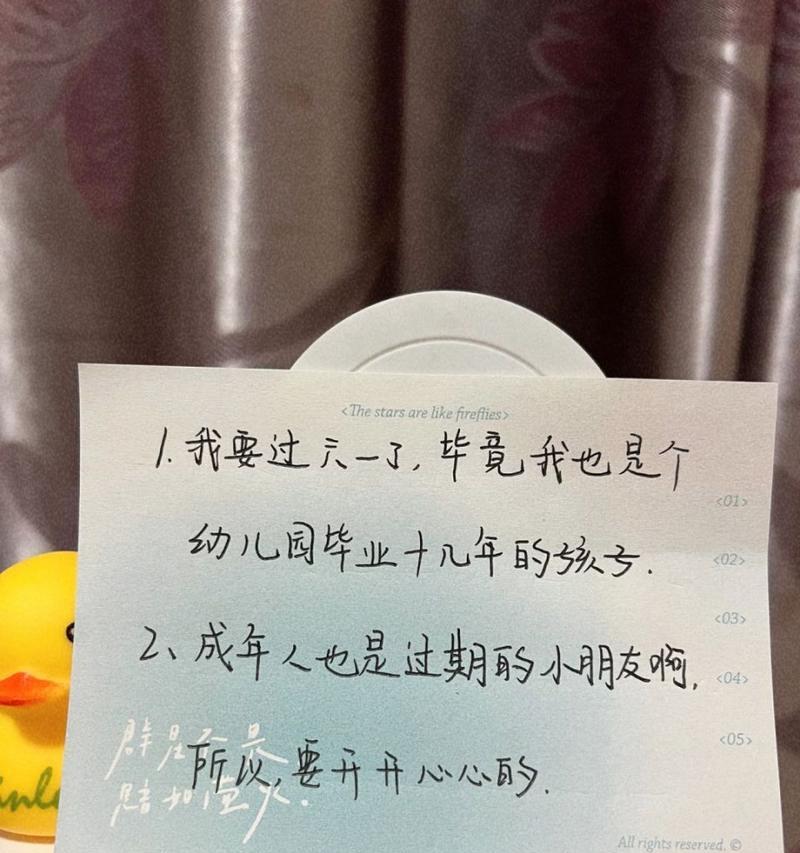 <The stars are like fireflies>
1. 我要过六一了, 毕竟我也是个
<01>
幼儿园毕业十几年的孩子.
<02>
<03>
2、成年人也是过期的小朋友啊,
<04>
所以, 要开开心心的.
<05>
All rights reserved. ©